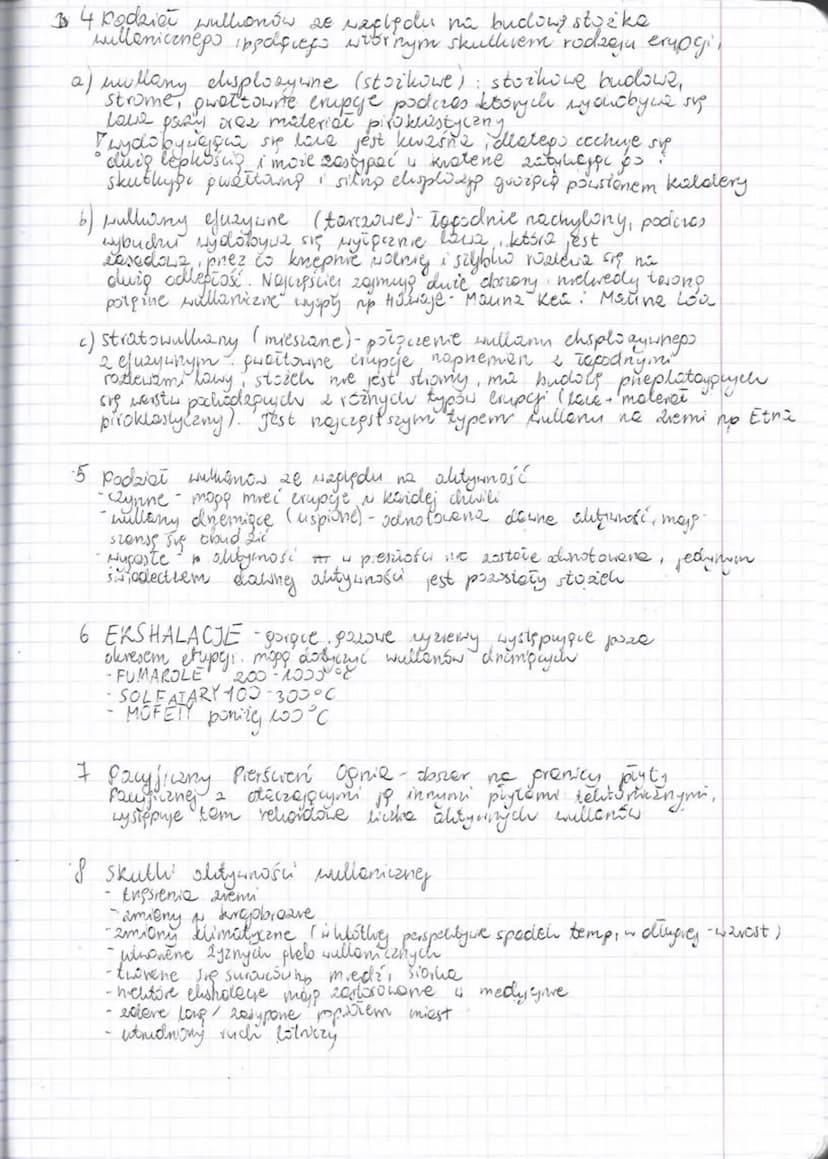 4 Podział wulkanów ze względu na budowę stożka
wulkanicznego będącego wtórnym skutkiem rodzaju erupcji,
a) wulkany eksplozywne (stożkowe): stożkowa budowa,
strome, gwałtowne erupcje podczas których wydobywa się
lawa gazy oraz materiał piroklastyczny
wydobywająca się lawa jest kwaśna, dlatego cechuje się
dużą lepkością i może zastygać w kraterze zatykając go i
skutkując gwałtowną i silną eksplozją grożącą powstaniem kaldery
b) wulkany efuzywne (tarczowe) - łagodnie nachylony, podczas
wybuchu wydobywa się wyłącznie lawa, która jest
zasadowa, przez co krzepnie wolniej i szybko rozlewa się na
dużą odległość. Najczęściej zajmują duże obszary, niekiedy tworzą
potężne wulkaniczne wyspy np Hawaje - Mauna Kea i Mauna Loa
c) stratowulkany (mieszane) - połączenie wulkanu eksplozywnego
z efuzywnym. gwałtowne erupcje naprzemian z łagodnymi
rozlewami lawy, stożek nie jest stromy, ma budowę przeplatających
się warstw pochodzących z różnych typów erupcji (lawa + materiał
piroklastyczny). Jest najczęstszym typem wulkanu na ziemi np Etna
5 Podział wulkanów ze względu na aktywność
- czynne - mogą mieć erupcje w każdej chwili
- wulkany drzemiące (uśpione) - odnotowana dawna aktywność, mają
szansę się obudzić
- wygasłe - aktywność w przeszłości nie została odnotowana, jedynym
świadectwem dawnej aktywności jest pozostały stożek
6 EKSHALACJE - gorące gazowe wyziewy występujące poza
okresem erupcji. mogą dotyczyć wulkanów drzemiących
- FUMAROLE 200 - 1000 °C
- SOLFATARY 100 - 300 °C
- MOFETY poniżej 100 °C
7 Pacyficzny Pierścień Ognia - obszar na granicy płyty
Pacyficznej z otaczającymi ją innymi płytami tektonicznymi,
występuje tam rekordowa liczba aktywnych wulkanów
8 Skutki aktywności wulkanicznej
- trzęsienia ziemi
- zmiany w krajobrazie
- zmiany klimatyczne (w krótkiej perspektywie spadek temp, w długiej - wzrost)
- utworzenie żyznych gleb wulkanicznych
- tworzenie się surowców, miedź, siarka
- niektóre ekshalacje mają zastosowanie w medycynie
- zalane lawą / zasypane popiołem miast
- utrudniony ruch lotniczy